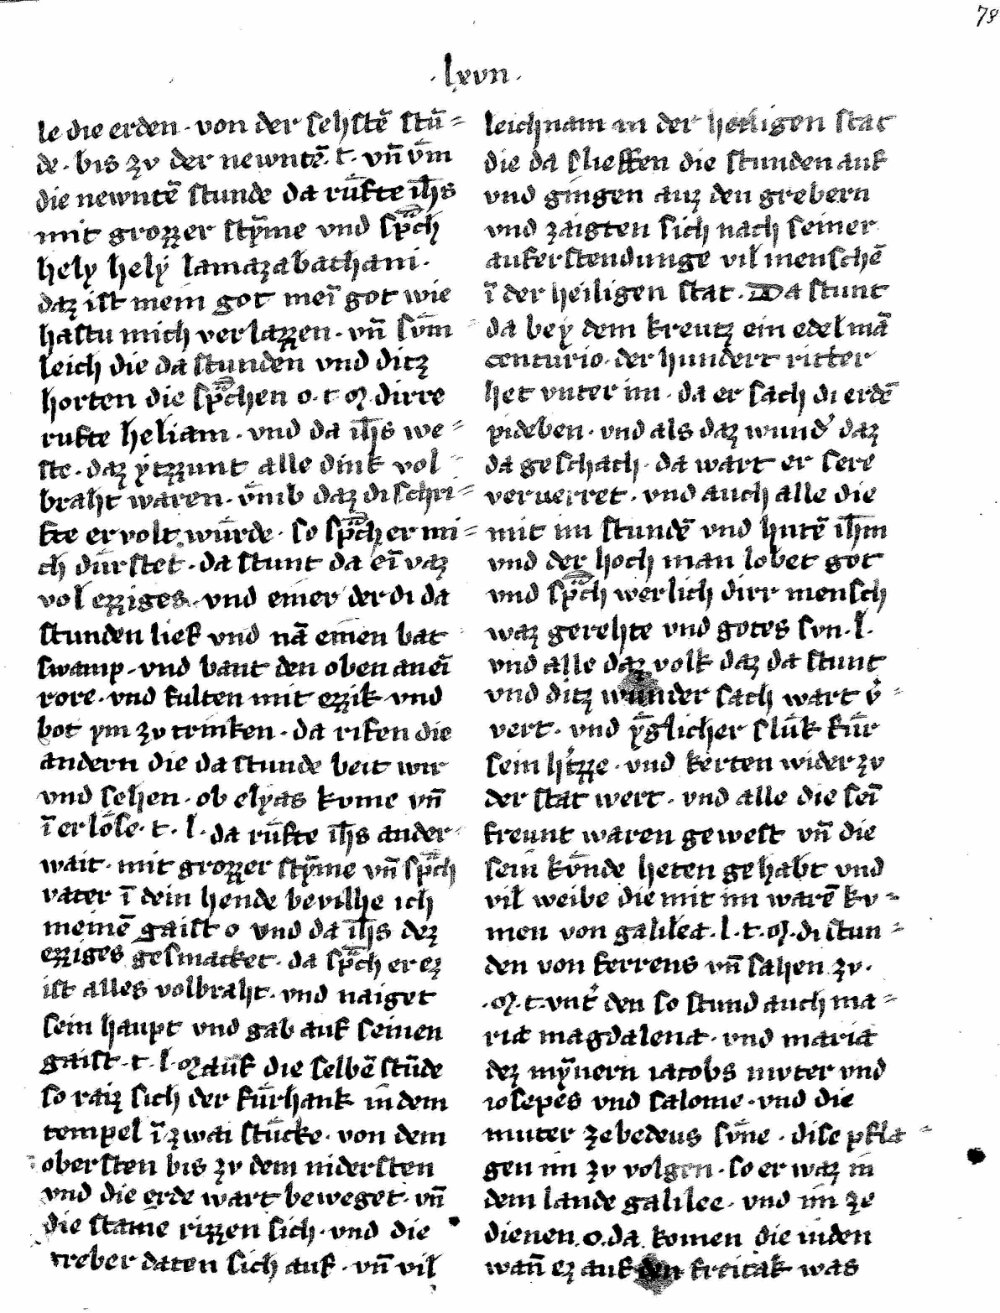 78
· lxvii ·
le die erden · von der sehstē stū=
de · bis zv der newntē · t · vn̄ v̄m
die newntē stunde da rūfte ih̄s
mit grozzer stȳme vnd sp̄ch
hely hely lamazabathani ·
daz ist mein got mei̅ got wie
hastu mich verlazzen · vn̄ sv̄m=
leich die da stunden vnd ditz
horten die sp̄chen o · t · m · dirre
rufte heliam · vnd da ih̄s we=
ste · daz ytzzunt alle dink vol=
braht waren · v̄mb daz di schri=
fte ervolt wūrde · so sp̄ch er mi=
ch dūrstet · da stunt da ei̅ vaz
vol ezziges · vnd einer der di da
stunden lief vnd nā einen bat
swamp · vnd bant den oben an ei̅
rore · vnd fulten mit ezzik · vnd
bot ym zv trinken · da rifen die
andern die da stunde beit wir
vnd sehen · ob elyas kvme vn̄
i̅ erlo̊se · t · l · da rūfte ih̄s ander
wait · mit grozzer stȳme vn̄ sp̄ch
vater i̅ dein hende bevilhe ich
meinē gaist o vnd da ih̄s dez
ezziges gesmacket · da sp̄ch er ez
ist alles volbraht · vnd naiget
sein haupt vnd gab auf seinen
gaist · t · l · m auf die selbē stūde
so raiz sich der fūrhank in dem
tempel i̅ zwai stūcke · von dem
obersten bis zv dem nidersten
vnd die erde wart beweget · vn̄
die staine rizzen sich · vnd die
greber daten sich auf · vn̄ vil
leichnam in der heiligen stat
die da slieffen die stunden auf
vnd gingen auz den grebern
vnd zaigten sich nach seiner
auferstendunge vil menschē
i̅ der heiligen stat · Da stunt
da bey dem kreutz ein edel mā
centurio · der hundert ritter
het vnter im · da er sach di erdē
pideben · vnd als daz wund' daz
da geschach · da wart er sere
veruerret · vnd auch alle die
mit im stundē vnd hutē ih̄m
vnd der hoch man lobet got
vnd sp̄ch werlich dirr mensch
waz gerehte vnd gotes svn · l ·
vnd alle daz volk daz da stunt
vnd ditz wunder sach wart v'=
vert · vnd ẏglicher slūk fūr
sein h'zze · vnd kerten wider zv
der stat wert · vnd alle die sei̅
freunt waren gewest vn̄ die
sein kv̄nde heten gehabt vnd
vil weibe die mit im warē kv=
men von galilea · l · t · m · di stun=
den von ferrens vn̄ sahen zv ·
· m · t · vnt' den so stund auch ma=
ria magdalena · vnd maria
dez mȳnern iacobs mvter vnd
iosepes vnd salome · vnd die
muter zebedeus sv̄ne · dise pfla=
gen im zv volgen · so er waz in
dem lande galilee · vnd im ze
dienen · o · da komen die iuden
wan̄ ez auf den freitak was